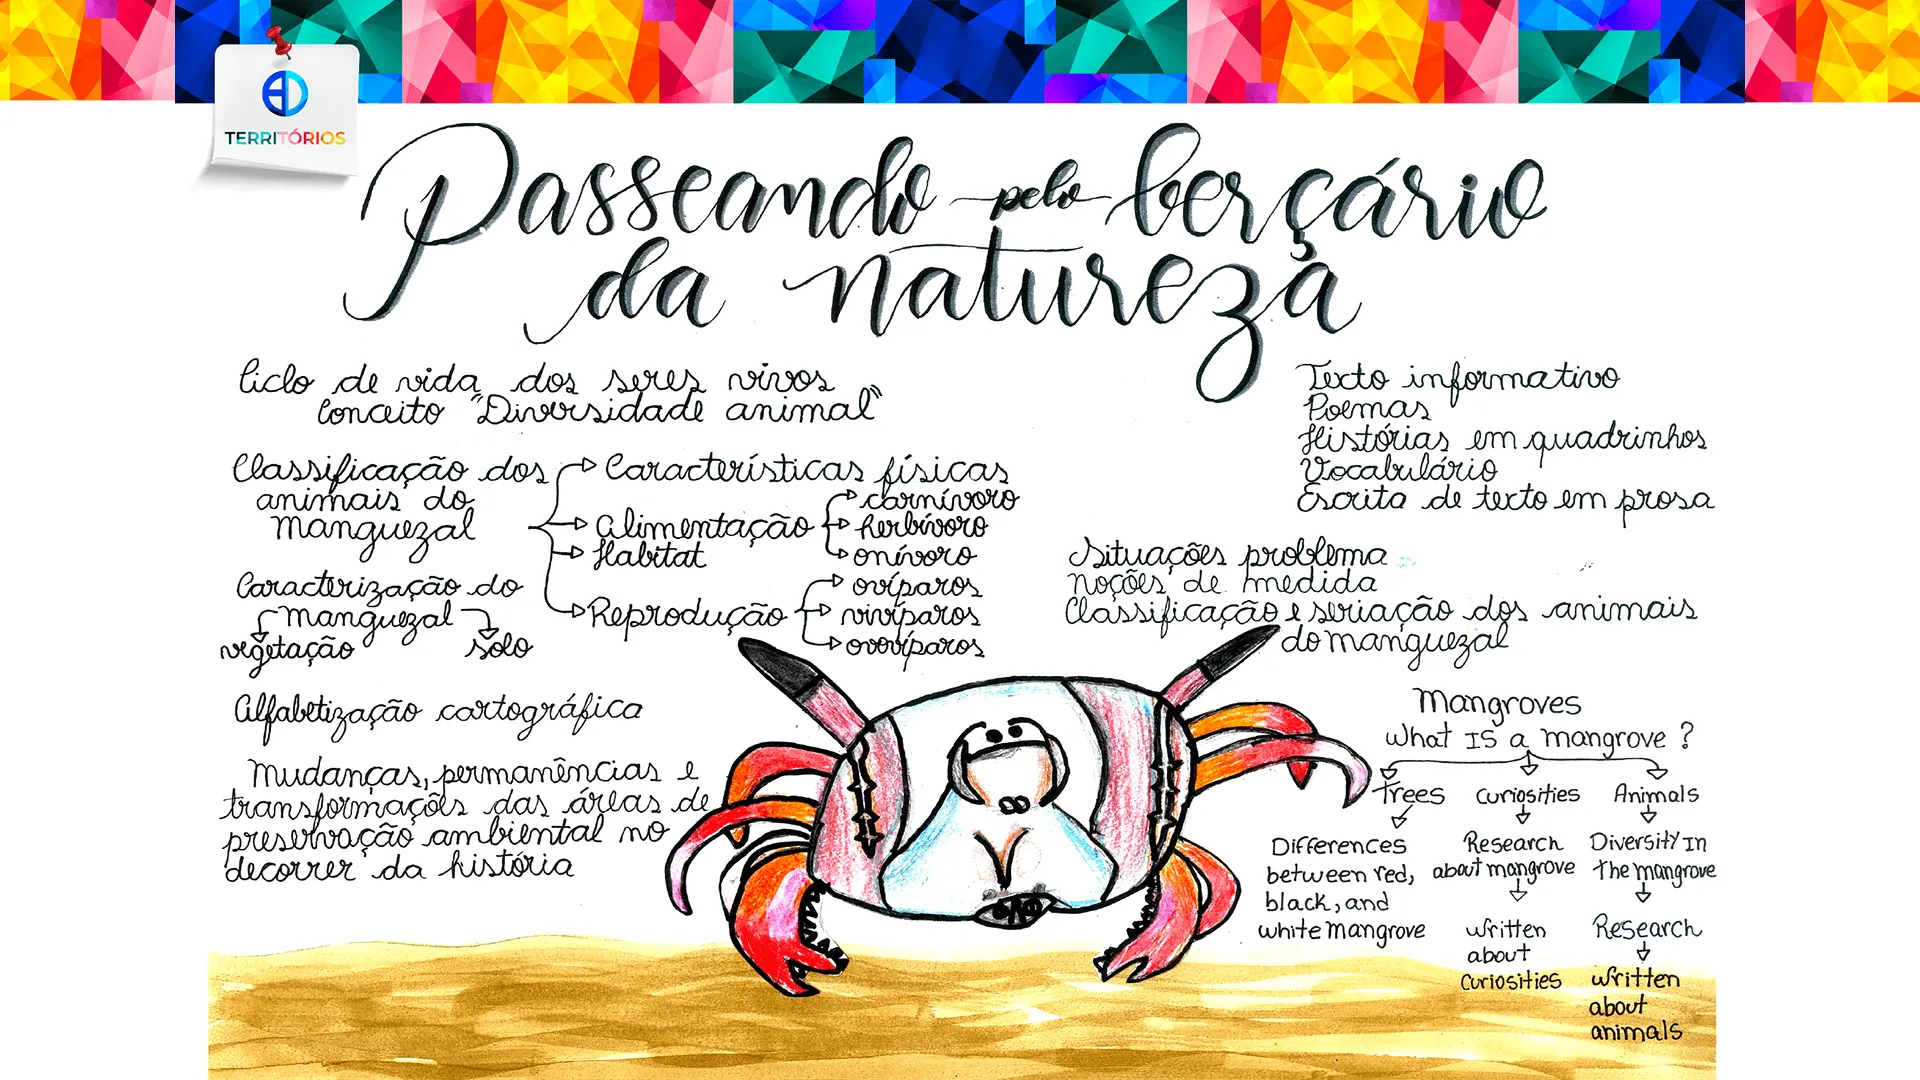 TERRITÓRIOS
Passeando pelo berçário
da natureza
Ciclo de vida dos seres vivos
Conceito "Diversidade animal"
Classificação dos
animais do
manguezal
Características físicas
Alimentação
carnívoro
herbívoro
onívoro
Habitat
Reprodução
ovíparos
vivíparos
ovovíparos
Caracterização do
manguezal
vegetação
solo
Alfabetização cartográfica
Mudanças, permanências e
transformações das áreas de
preservação ambiental no
decorrer da história
Texto informativo
Poemas
Histórias em quadrinhos
Vocabulário
Escrita de texto em prosa
Situações problema
noções de medida
Classificação e seriação dos animais
do manguezal
Mangroves
What IS a mangrove?
Trees
Differences
between red,
black, and
white mangrove
Curiosities
Research
about mangrove
written
about
curiosities
Animals
Diversity In
the mangrove
Research
written
about
animals